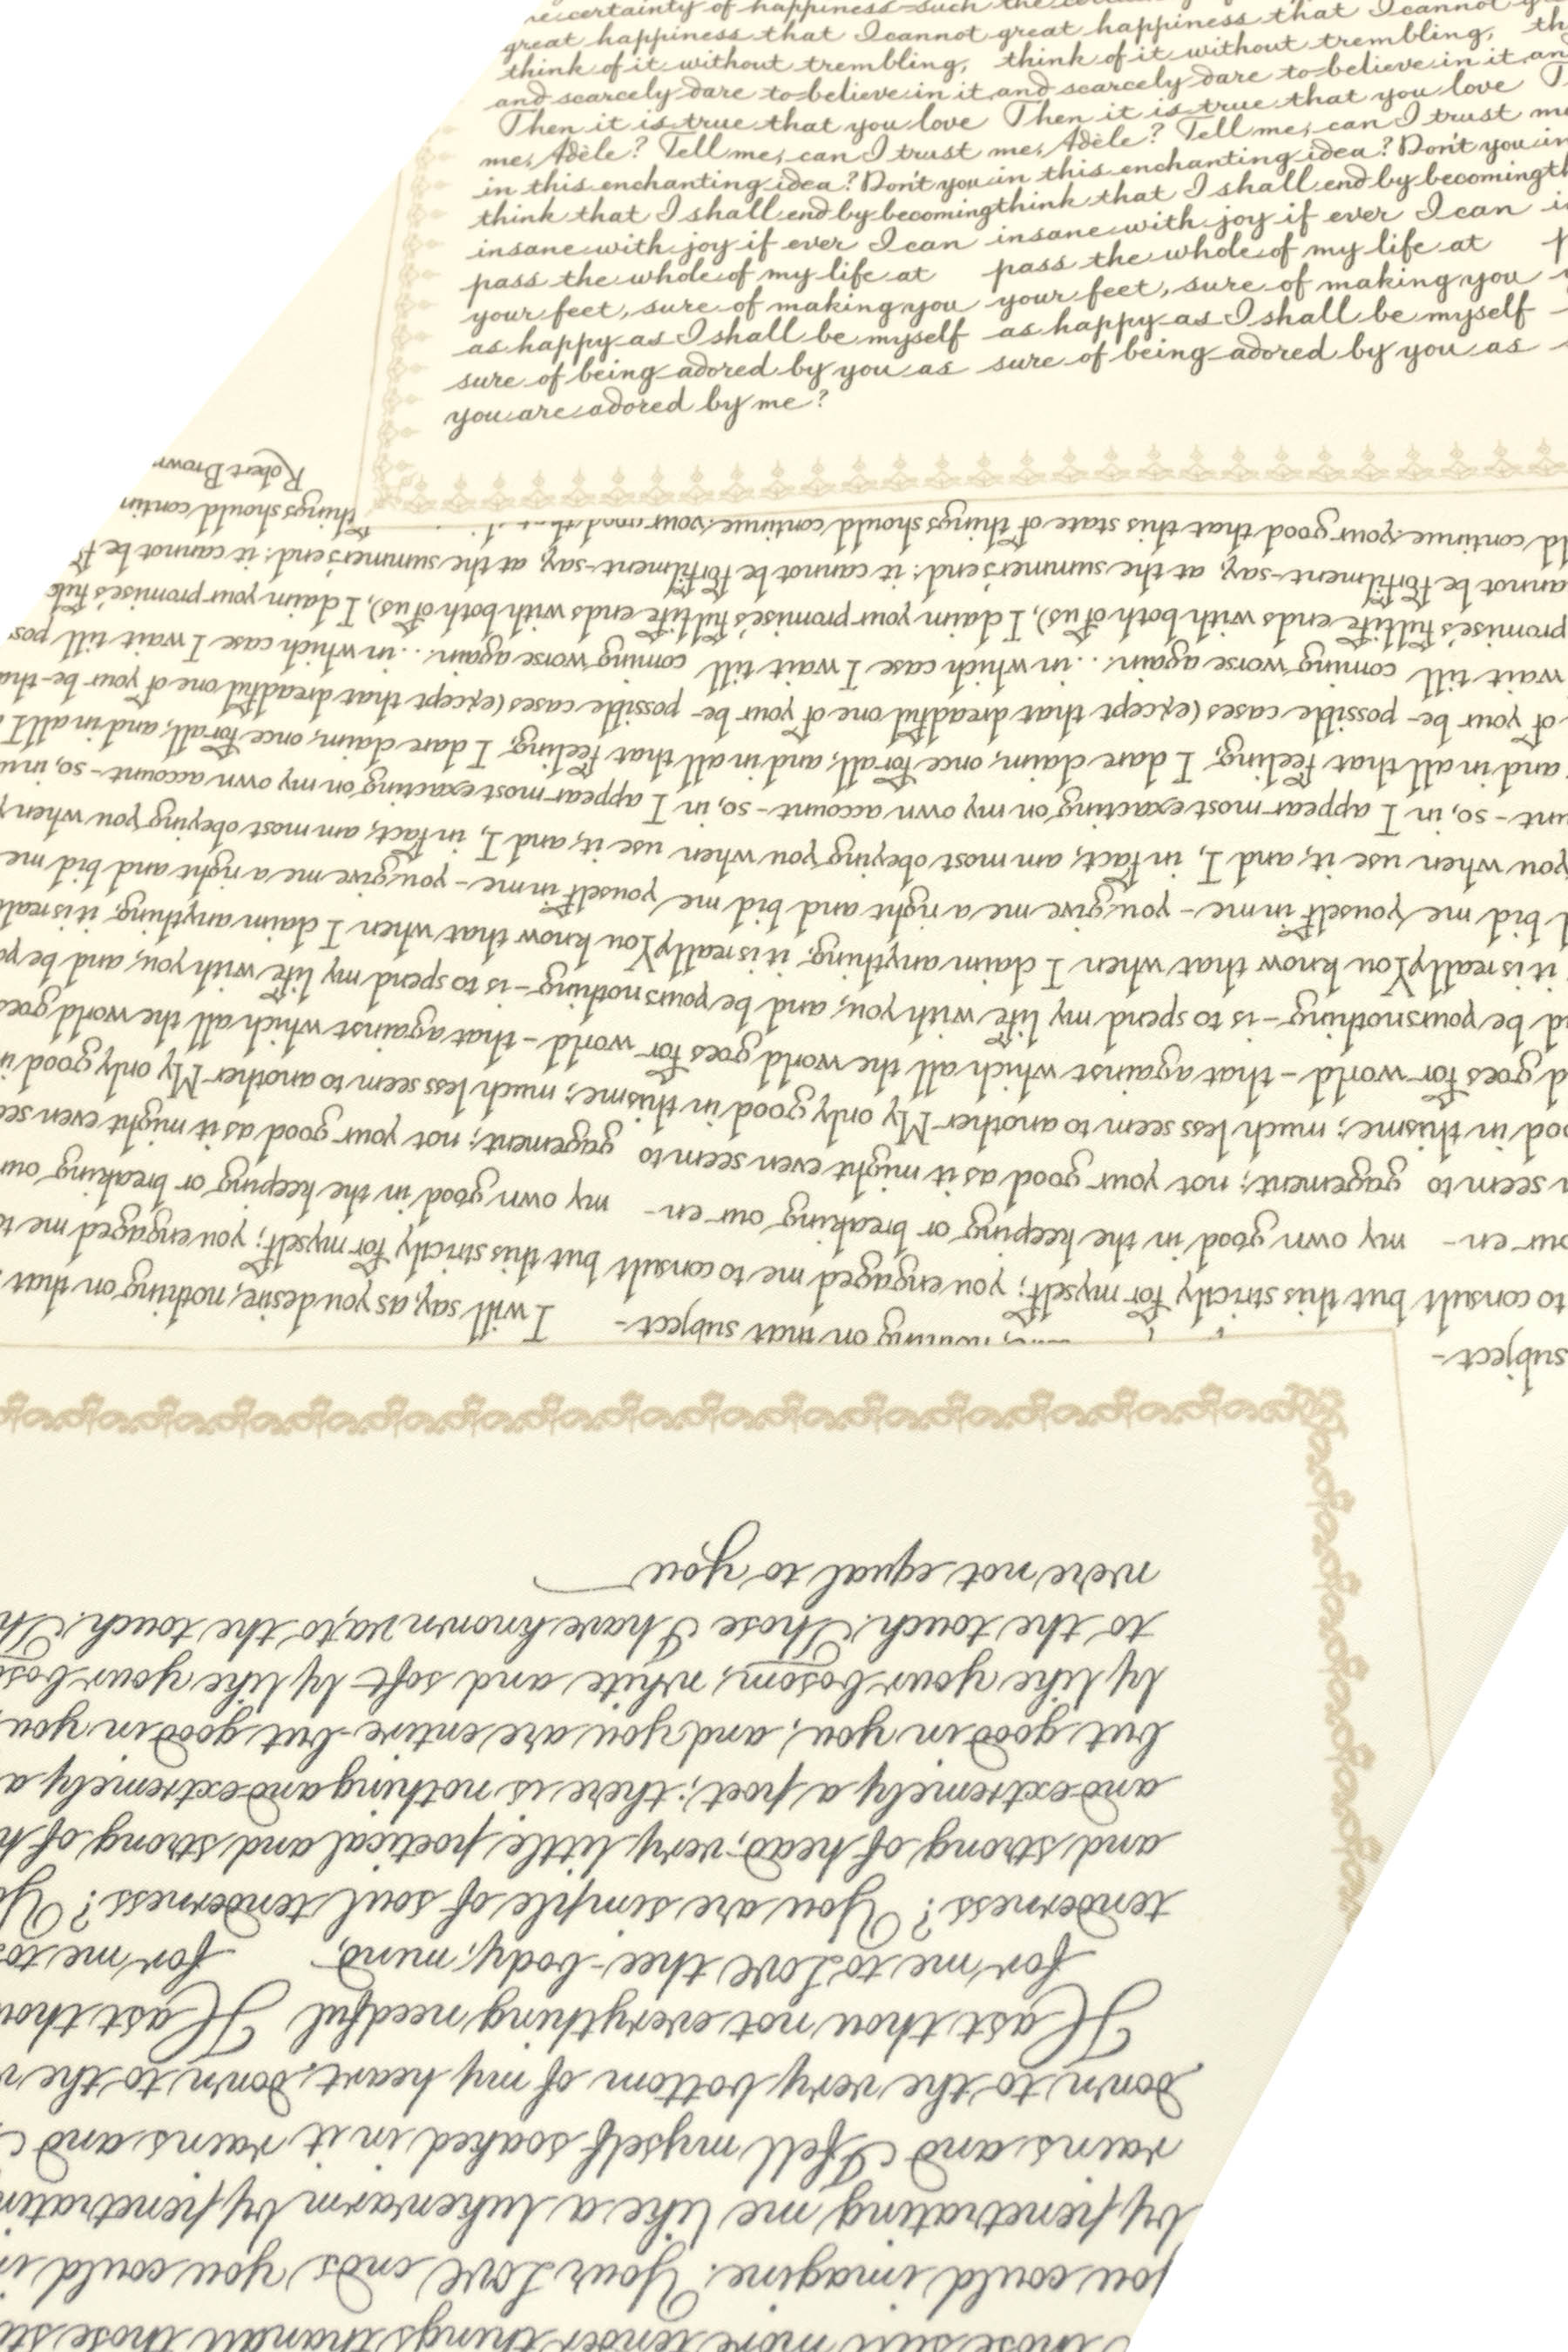 great happiness that I cannot great happiness that I cannot
think of it without trembling, think of it without trembling,
and scarcely dare to believe in it and scarcely dare to believe in it an
Then it is true that you love Then it is true that you love
me, Adèle? Tell me, can I trust me, Adèle? Tell me, can I trust me
in this enchanting idea? Don't you in this enchanting idea? Don't you in
think that I shall end by becoming think that I shall end by becoming th
insane with joy if ever I can insane with joy if ever I can
pass the whole of my life at pass the whole of my life at
your feet, sure of making you your feet, sure of making you
as happy as I shall be myself as happy as I shall be myself
sure of being adored by you as sure of being adored by you as
you are adored by me?
subject- nothing on that subject- I will say, as you desire, nothing on that
to consult but this strictly for myself; you engaged me to consult but this strictly for myself; you engaged me to
our en- my own good in the keeping or breaking our en- my own good in the keeping or breaking our
seem to gagement; not your good as it might even seem to gagement; not your good as it might even see
good in this me; much less seem to another My only good in this me; much less seem to another My only good
goes for world - that against which all the world goes for world - that against which all the world goes
be yours nothing - is to spend my life with you, and be yours nothing - is to spend my life with you, and be yo
it is really You know that when I claim anything, it is really You know that when I claim anything, it is real
bid me youself in me - you give me a right and bid me youself in me - you give me a right and bid me
you when use it, and I, in fact, am most obeying you when use it, and I, in fact, am most obeying you when
unt - so, in I appear most exacting on my own account - so, in I appear most exacting on my own account - so, in
and in all that feeling, I dare claim, once for all, and in all that feeling, I dare claim, once for all, and in all
of your be- possible cases (except that dreadful one of your be- possible cases (except that dreadful one of your be-
wait till coming worse again... in which case I wait till coming worse again... in which case I wait till pos
promise's ful life ends with both of us), I claim your promise's ful life ends with both of us), I claim your promise's ful
cannot be for filment-say, at the summer's end: it cannot be for filment-say, at the summer's end: it cannot be f
ld continue. your good that this state of things should continue. your good things should contin
Robert Brown
those still more tender things than all those
you could imagine. Your love ends you could
by penetrating me like a lukewarm by penetratin
rains and I fell myself soaked in it rains and
down to the very bottom of my heart. down to the
Hast thou not everything needful Hast thou
for me to love thee-body, mind, for me to
tenderness? You are simple of soul tenderness?
and strong of head, very little poetical and strong of h
and extremely a poet; there is nothing and extremely a
but good in you, and you are entire- but good in you
ly like your bosom, white and soft ly like your boso
to the touch. Those I have known va, to the touch. Th
were not equal to you